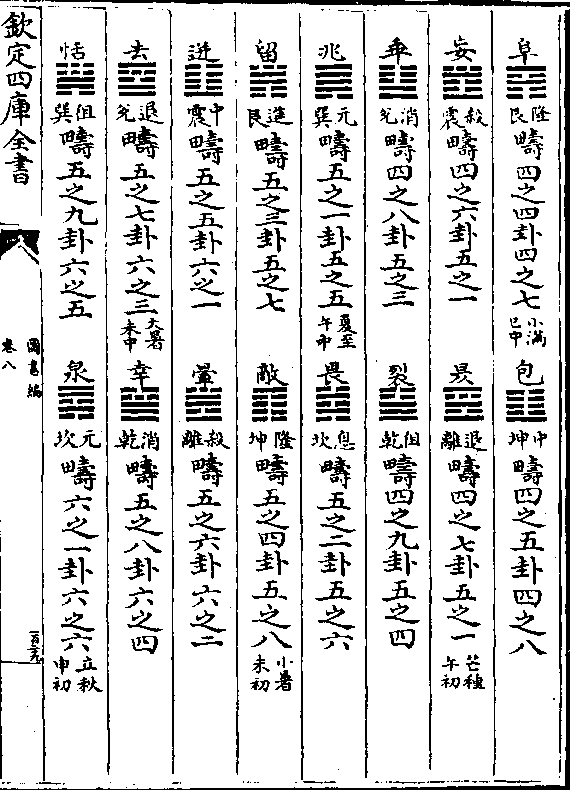 阜 隆艮 疇四之四卦四之七 小滿巳中 包 中坤 疇四之五卦四之八
妄 殺震 疇四之六卦五之一 昃 退離 疇四之七卦五之一 芒種午初
乖 消兊 疇四之八卦五之三 裂 伹乾 疇四之九卦五之四
兆 元巽 疇五之一卦五之五 夏至午中 畏 息坎 疇五之二卦五之六
留 進艮 疇五之三卦五之七 敵 隆坤 疇五之四卦五之八 小暑未初
迸 中震 疇五之五卦六之一 暈 殺離 疇五之六卦六之二
去 退兊 疇五之七卦六之三 大暑未中 幸 消乾 疇五之八卦六之四
恬 伹巽 疇五之九卦六之五 泉 元坎 疇六之一卦六之六 立秋申初
欽定四庫全書
圖書編
卷八